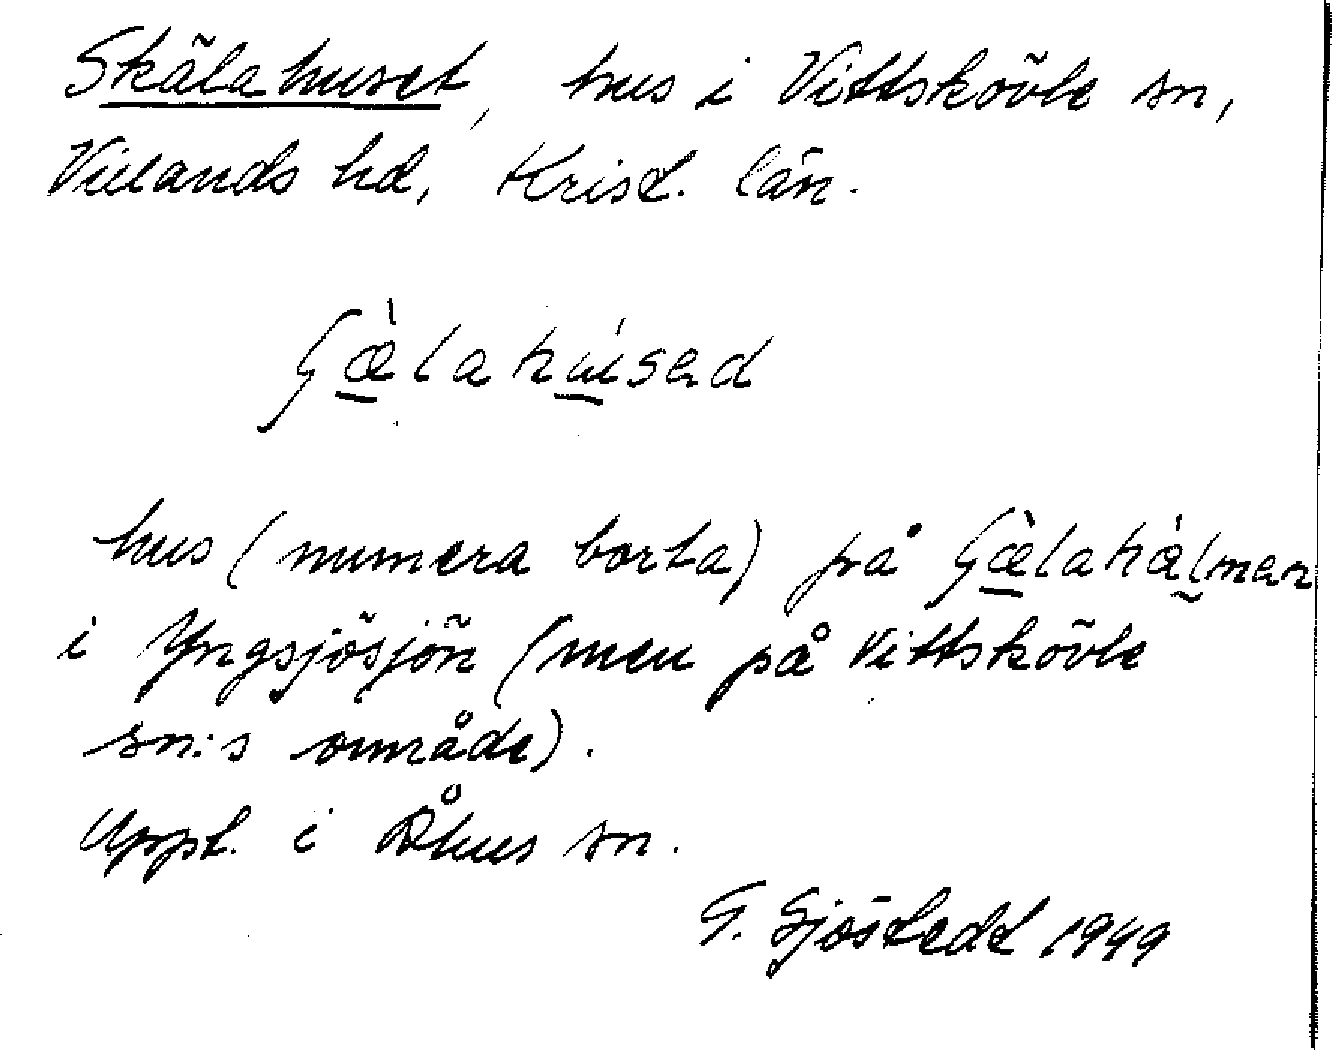 Skälahuset, hus i Vittskövle sn,
Villands hd, Krist. län.
Gæ̀lahúsed
hus (numera borta) på Gæ̀lahálmen
i Yngsjösjön (men på Vittskövle
sn:s område).
Uppt. i Åhus sn.
G. Sjöstedt 1949